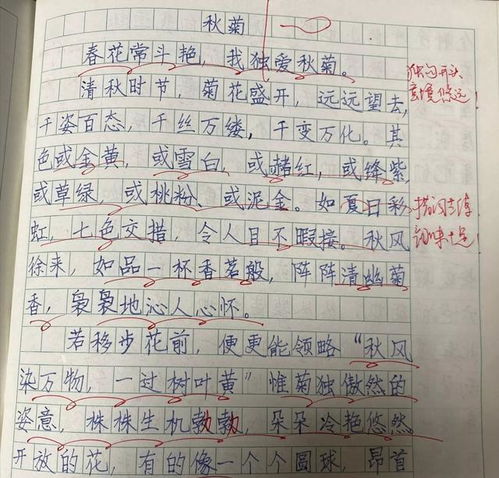 秋菊
春花常斗艳，我独爱秋菊。
清秋时节，菊花盛开，远远望去，
千姿百态，千丝万缕，千变万化。其
色或金黄，或雪白，或赭红，或绛紫，
或草绿，或桃粉、或泥金。如夏日彩
虹，七色交措，令人目不暇接。秋风
徐来，如品一杯香茗般，阵阵清幽菊
香，袅袅地沁人心怀。
若移步花前，便更能领略“秋风
染万物，一过树叶黄”惟菊独傲然的
姿意，株株生机勃勃，朵朵冷艳悠然
开放的花，有的像一个个圆球，昂首
独句开头
意境悠远